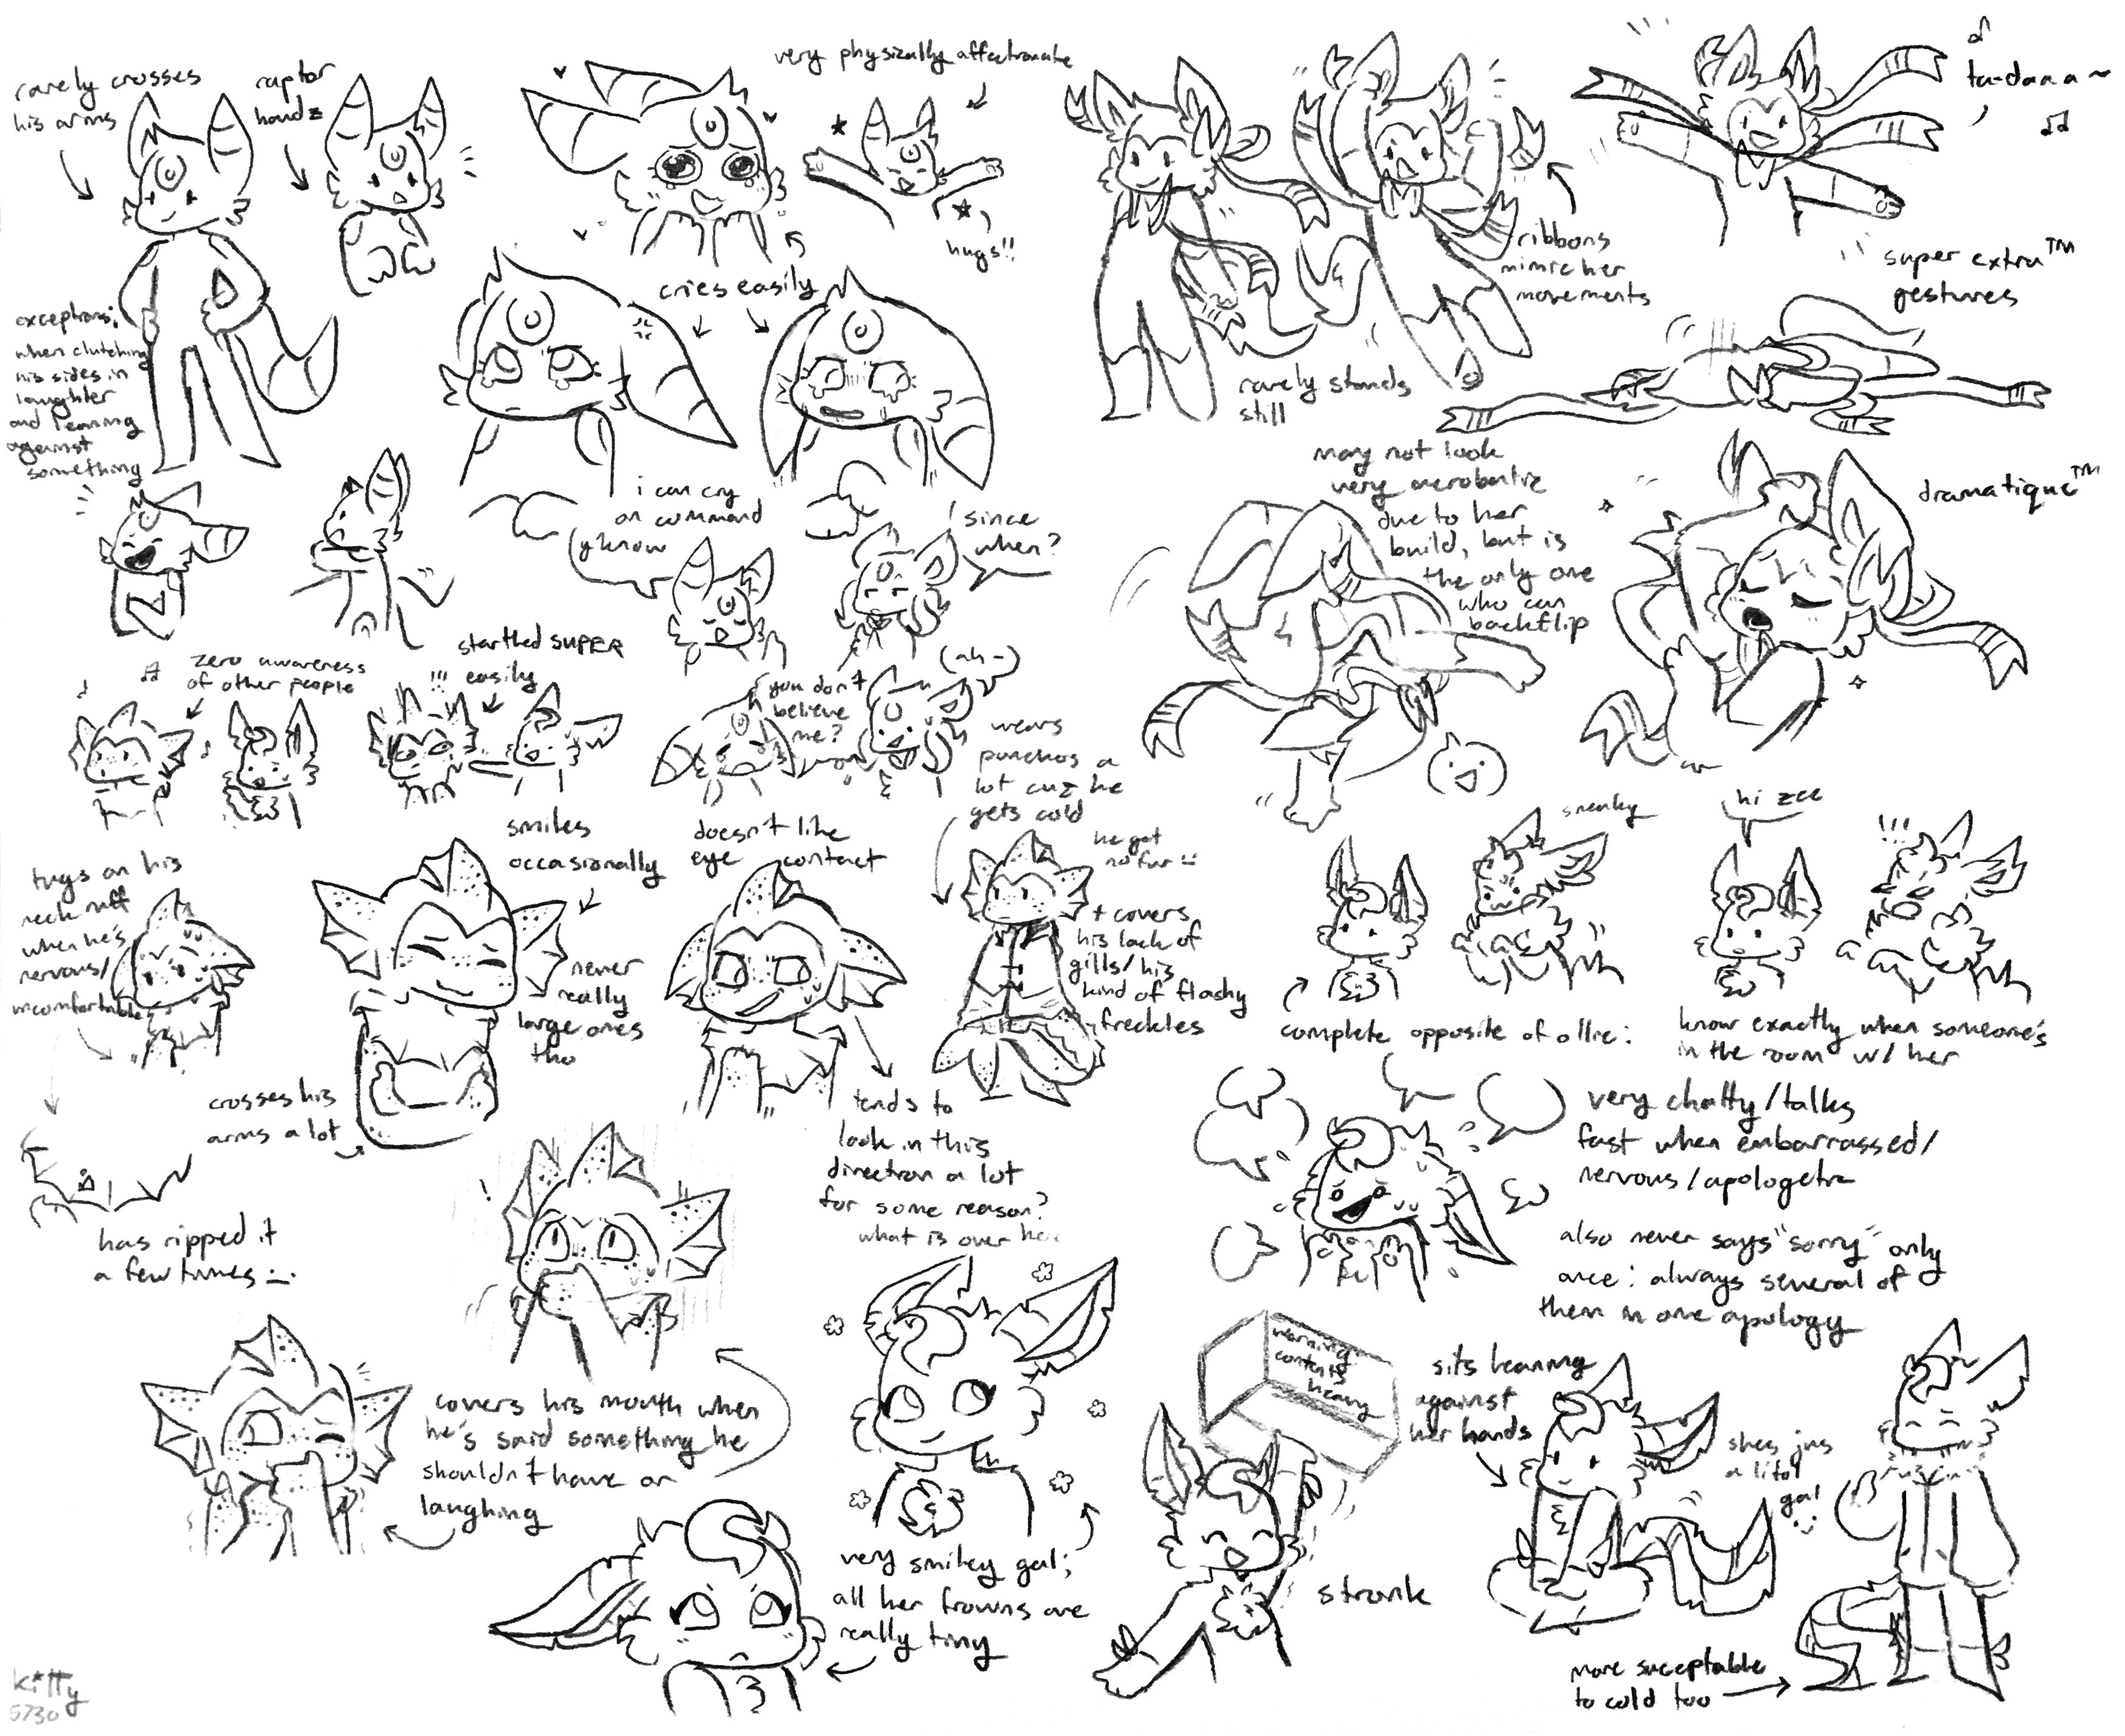 rarely crosses
his arms
raptor
handz
exceptions:
when clutching
his sides in
laughter
and leaning
against
something
very physically affectionate
hugs!!
cries easily
i can cry
on command
y'know
since
when?
you don't
believe
me?
(ah-)
ribbons
mimic her
movements
rarely stands
still
ta-daaa~
super extra™
gestures
may not look
very acrobatic
due to her
build, but is
the only one
who can
backflip
dramatique™
zero awareness
of other people
startled SUPER
easily
!!!
tugs on his
neck ruff
when he's
nervous/
uncomfortable
has ripped it
a few times
smiles
occasionally
never
really
large ones
tho
crosses his
arms a lot
doesn't like
eye contact
tends to
look in this
direction a lot
for some reason?
what is over
wears
ponchos a
lot cuz he
gets cold
he got
no fur
+ covers
his lack of
gills/his
kind of flashy
freckles
!
covers his mouth when
he's said something he
shouldn't have or
laughing
sneaky
hi zee
!!!
complete opposite of ollie:
know exactly when someone's
in the room w/ her
very chatty/talks
fast when embarrassed/
nervous/apologetic
also never says "sorry" only
once: always several of
them in one apology
very smiley gal;
all her frowns are
really tiny
warning
contents
heavy
stronk
sits leaning
against
her hands
shes jus
a litol
gal
:)
more suceptable
to cold too
kitty
5730